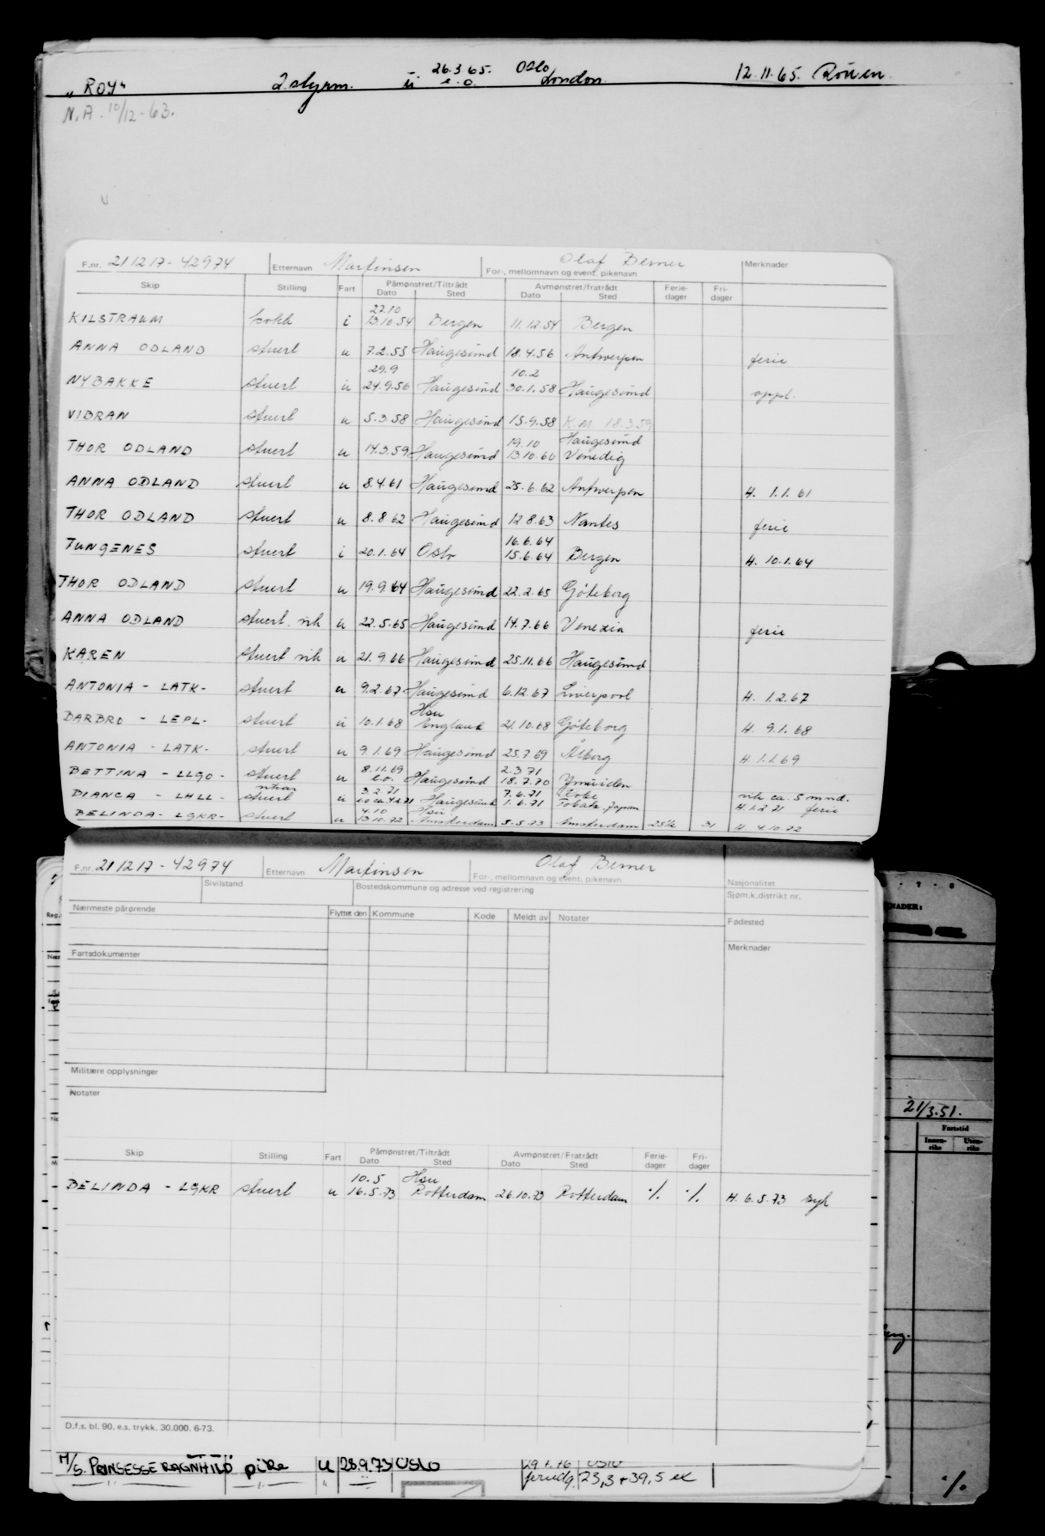 26.3.65. Oslo
„ROY" 2 styrm. u e.o. London 12.11.65. Rouen
N.A. 10/12-63.
F.nr. 211217-42974 Etternavn Martinsen Olaf Berner Merknader
For-, mellomnavn og event. pikenavn
Skip Stilling Fart Påmønstret/Tiltrådt Dato Sted Avmønstret/fratrådt Dato Sted Ferie-dager Fri-dager
22.10
KILSTRAUM kokk i 13.10.54 Bergen 11.12.54 Bergen
ANNA ODLAND stuert u 7.2.55 Haugesund 18.4.56 Antwerpen ferie
29.9 10.2
NYBAKKE stuert u 24.9.56 Haugesund 30.1.58 Haugesund oppl.
VIBRAN stuert u 5.3.58 Haugesund 15.9.58 K.M. 18.3.59
19.10 Haugesund
THOR ODLAND stuert u 14.3.59 Haugesund 13.10.60 Venedig
ANNA ODLAND stuert u 8.4.61 Haugesund 25.6.62 Antwerpen H. 1.1.61
THOR ODLAND stuert u 8.8.62 Haugesund 12.8.63 Nantes ferie
16.6.64
TUNGENES stuert i 20.1.64 Oslo 15.6.64 Bergen H. 10.1.64
THOR ODLAND stuert u 19.9.64 Haugesund 22.2.65 Göteborg
ANNA ODLAND stuert nk u 22.5.65 Haugesund 14.7.66 Venezia ferie
KAREN stuert nk u 21.9.66 Haugesund 25.11.66 Haugesund
ANTONIA - LATK - stuert u 9.2.67 Haugesund 6.12.67 Liverpool H. 1.2.67
Hsu
BARBRO - LEPL - stuert u 10.1.68 England 21.10.68 Göteborg H. 9.1.68
ANTONIA - LATK - stuert u 9.1.69 Haugesund 25.7.69 Ålborg H. 1.1.69
8.11.69 2.3.71
BETTINA - LLGO - stuert u e.o. Haugesund 18.7.70 Ymuiden
3.2.71 7.6.71 nk ca. 5 mnd.
BIANCA - LHLL - stuert u Haugesund 1.6.71 Tobata Japan H. 1.2.71 ferie
4.10 Hsu
BELINDA - LGKR - stuert u 13.10.72 Amsterdam 5.5.73 Amsterdam 25½ 31 H. 4.10.72
F.nr. 211217-42974 Etternavn Martinsen Olaf Berner
For-, mellomnavn og event. pikenavn Nasjonalitet
Sivilstand Bostedskommune og adresse ved registrering Sjøm.k.distrikt nr.
Nærmeste pårørende Flyttet den Kommune Kode Meldt av Notater Fødested
Fartsdokumenter Merknader
Militære opplysninger
Notater
Skip Stilling Fart Påmønstret/Tiltrådt Dato Sted Avmønstret/Fratrådt Dato Sted Ferie-dager Fri-dager
10.5 Hsu
BELINDA - LGKR stuert u 16.5.73 Rotterdam 26.10.73 Rotterdam ·/. ·/. H. 6.5.73 syk
D.f.s. bl. 90. e.s. trykk. 30.000. 6-73.
M/S. PRINSESSE RAGNHILD pike u 28.9.73 OSLO 29.1.76 OSLO
23,3+39,5
21/3.51.
Fartstid
Innen-riks Uten-riks
·/.